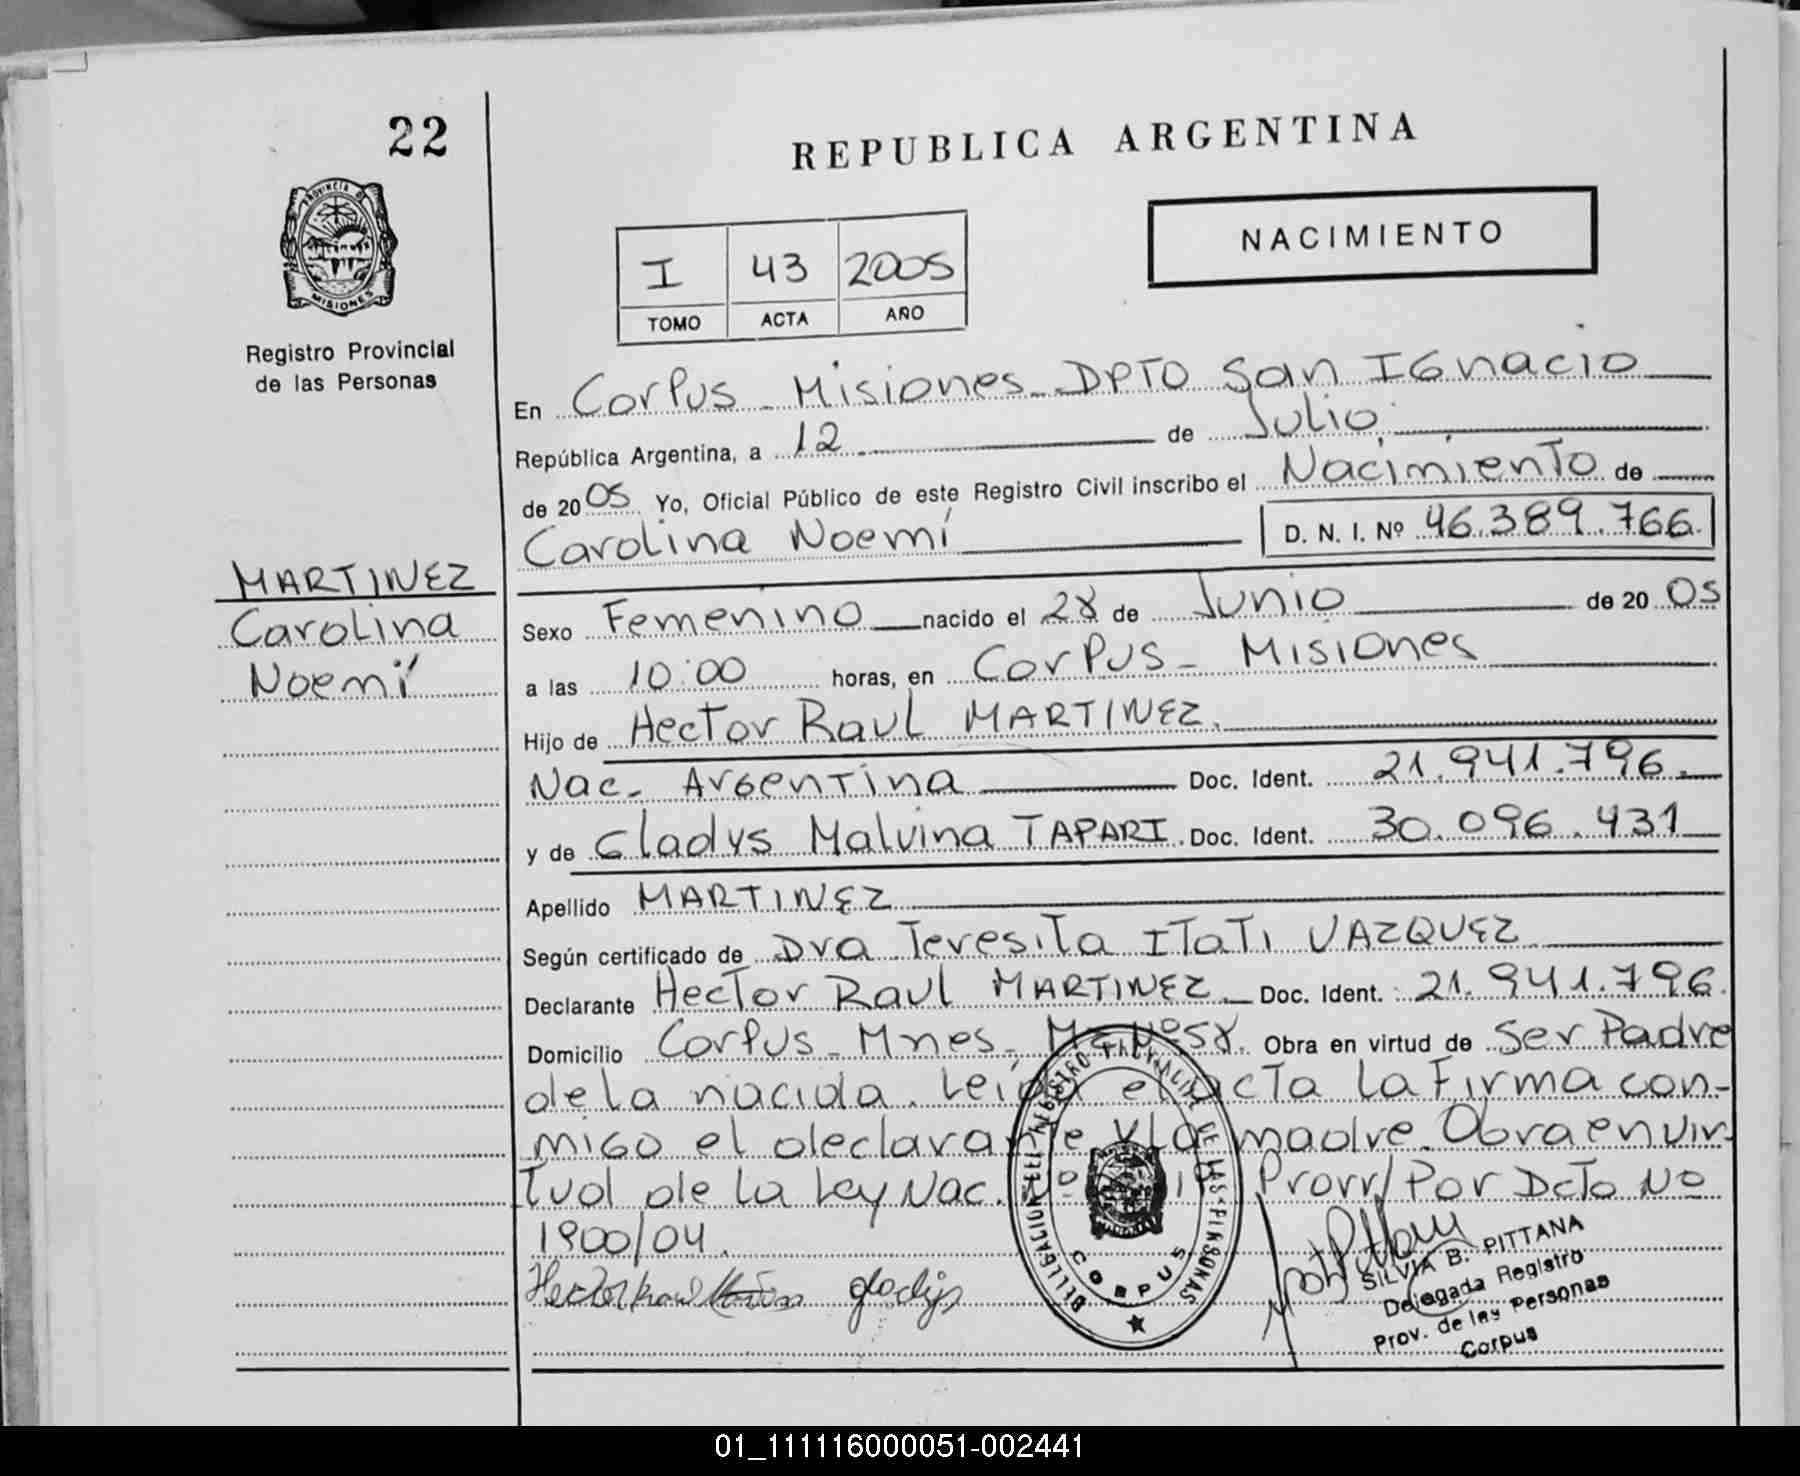 22
REPUBLICA ARGENTINA
PROVINCIA DE
MISIONES
Registro Provincial
de las Personas
I 43 2005
TOMO ACTA AÑO
NACIMIENTO
En Corpus - Misiones - DPTO San Ignacio
República Argentina, a 12 de Julio
de 2005 Yo, Oficial Público de este Registro Civil inscribo el Nacimiento de
Carolina Noemí D. N. I. Nº 46.389.766.
MARTINEZ
Carolina
Noemí
Sexo Femenino nacido el 28 de Junio de 2005
a las 10:00 horas, en Corpus - Misiones
Hijo de Hector Raul MARTINEZ.
Nac. Argentina Doc. Ident. 21.941.796.
y de Gladys Malvina TAPARI. Doc. Ident. 30.096.431
Apellido MARTINEZ
Según certificado de Dra Teresita Itati VAZQUEZ
Declarante Hector Raul MARTINEZ Doc. Ident. 21.941.796.
Domicilio Corpus - Mnes - Nº 58. Obra en virtud de Ser Padre
de la nacida. Leída el acta la Firma con-
migo el declarante y la madre. Obra en vir-
tud de la Ley Nac. Nº Prorr/Por Dcto Nº
1900/04.
Hector Raul gladys
DELEGACION DEL REGISTRO PROVINCIAL DE LAS PERSONAS
CORPUS
SILVIA B. PITTANA
Delegada Registro
Prov. de las Personas
Corpus
01_111116000051-002441